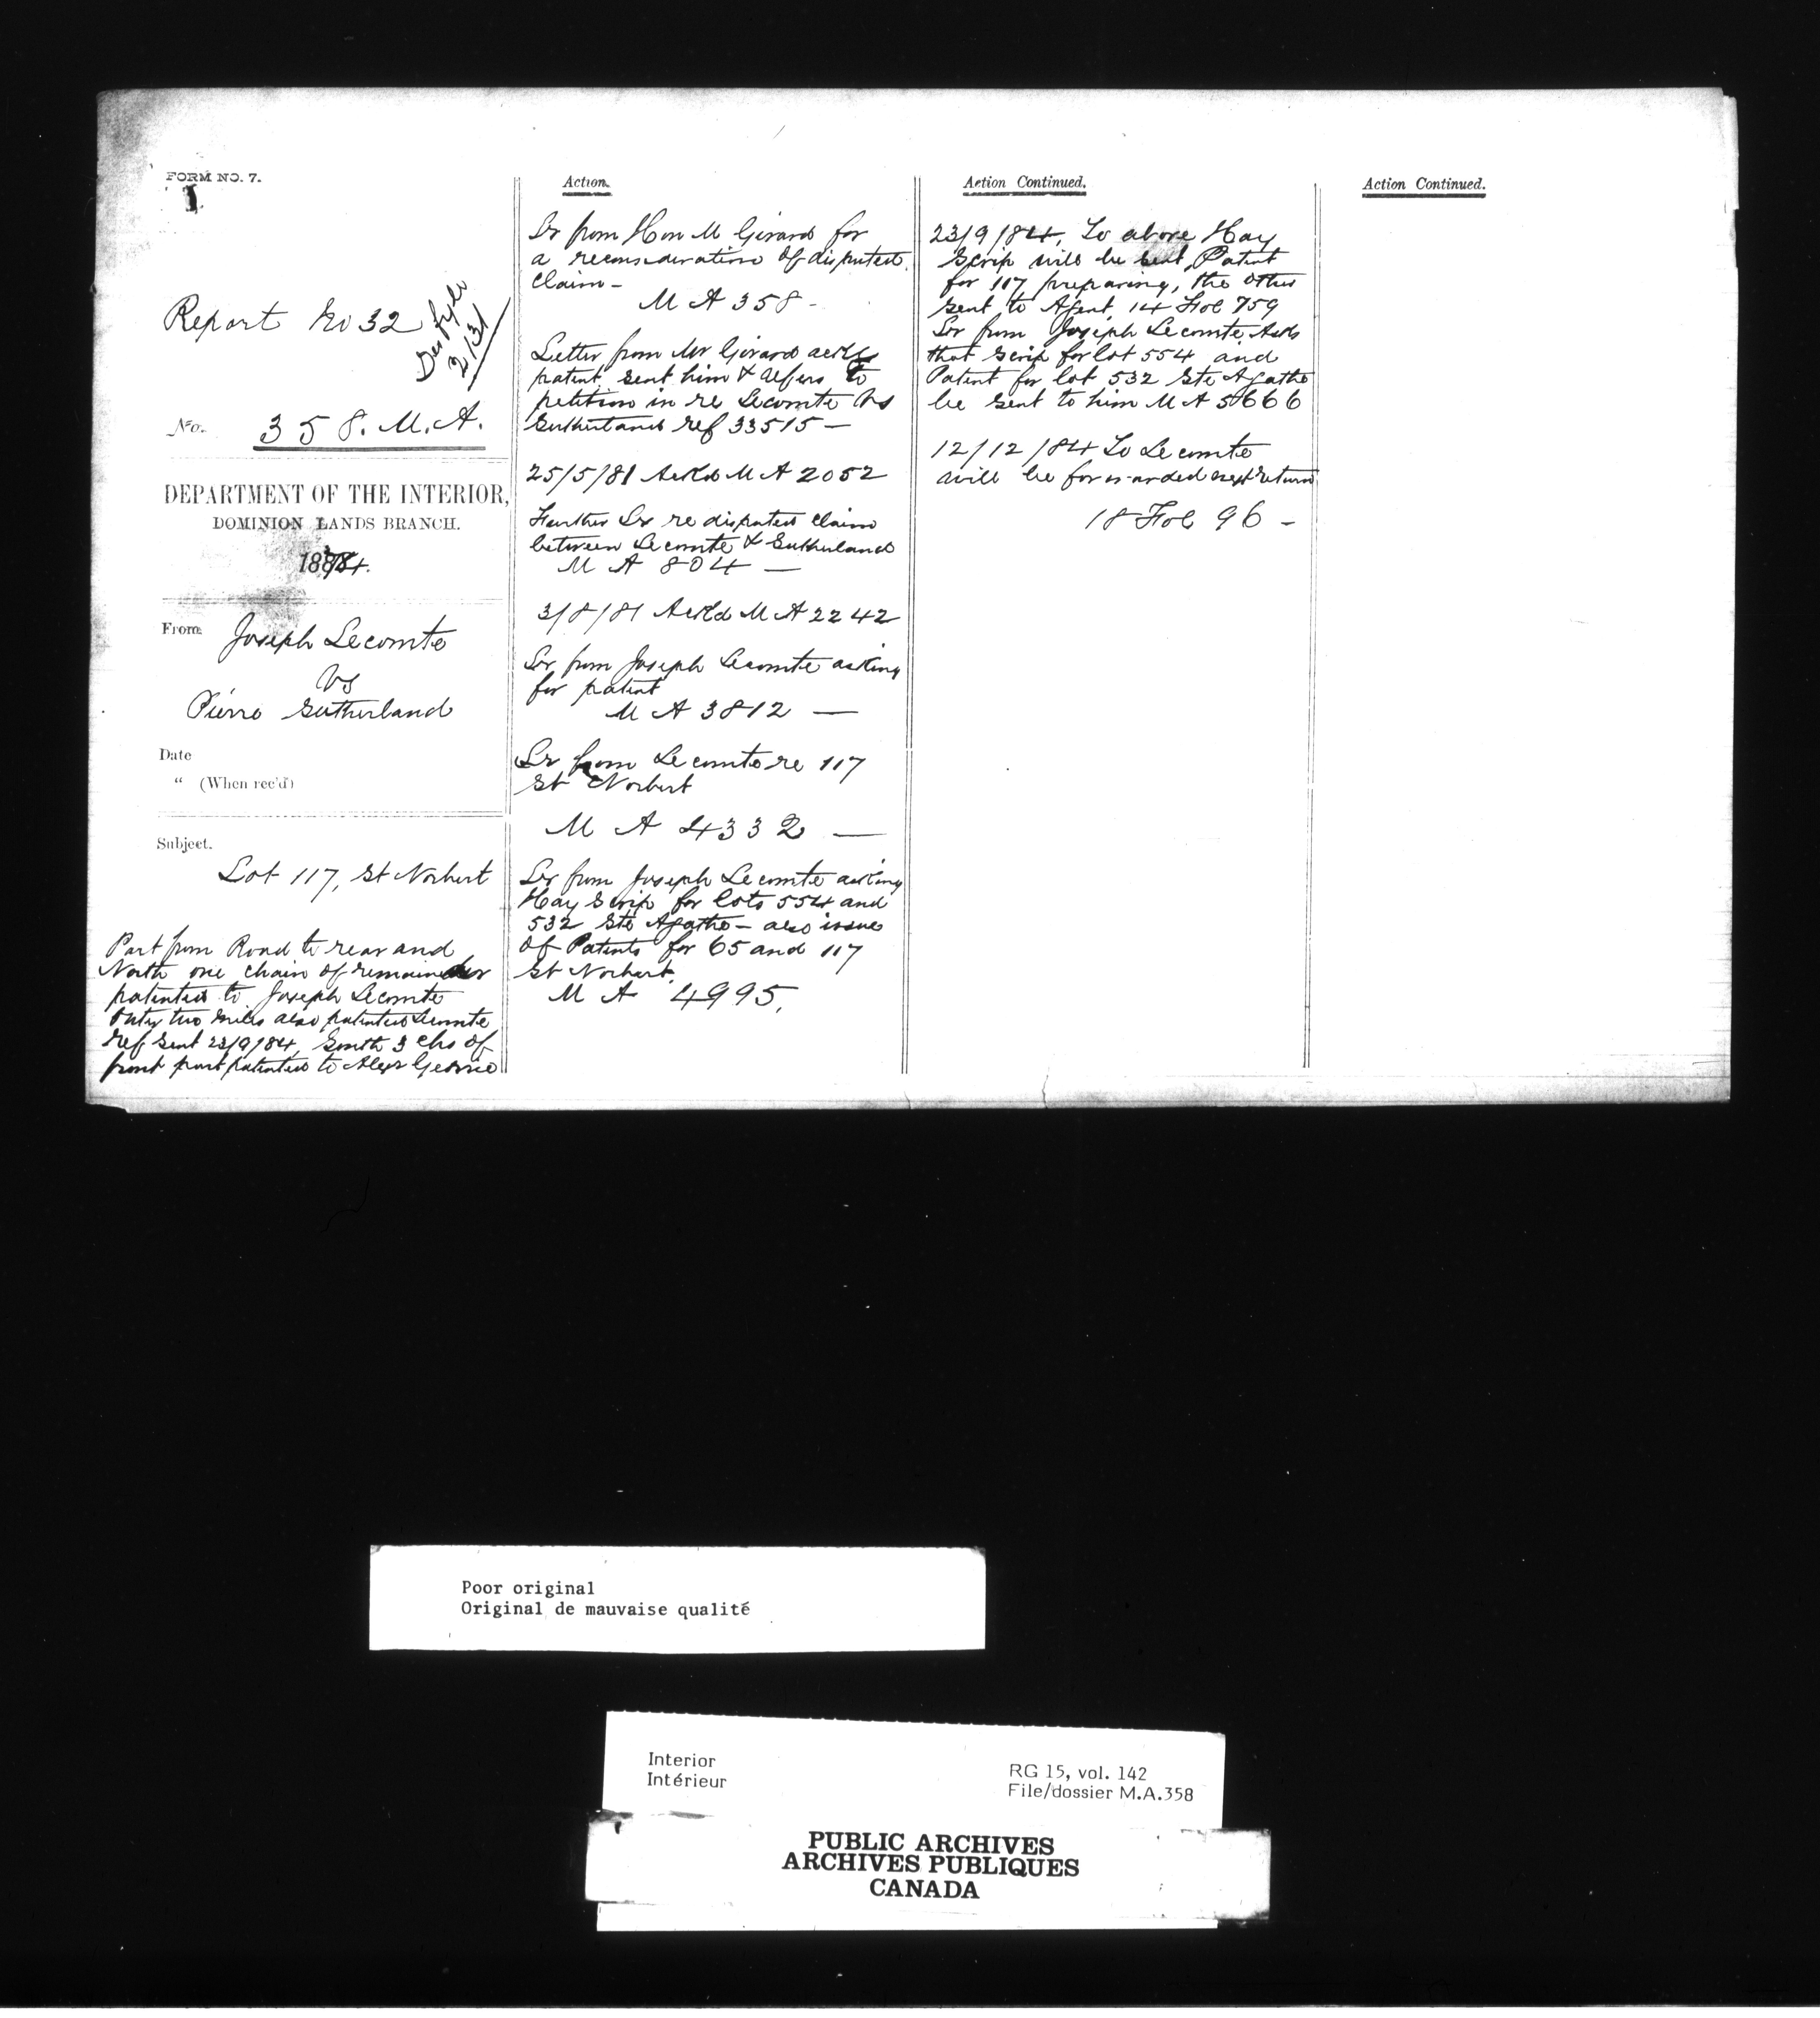 FORM NO. 7.
1
Report No 32
2131
No. 358. M.A.
DEPARTMENT OF THE INTERIOR,
DOMINION LANDS BRANCH.
From Joseph Lecomte
Vs
Pierre Sutherland
Date
" (When rec'd)
Subject.
Lot 117, St Norbert
Part from Road to rear and
North one chain of remainder
patented to Joseph Lecomte
Outer two miles also patented Lecomte
ref sent 23/9/84, South 3 chs of
front part patented to Alexr
Action.
Lr from Hon M Girard for
a reconsideration of disputed
claim -
M A 358 -
Letter from Mr Girard ackg
patent sent him & refers to
petition in re Lecomte Vs
Sutherland ref 33515 —
25/5/81 Ackd M A 2052
Further Lr re disputed claim
between Lecomte & Sutherland
M A 804 —
3/8/81 Ackd M A 2242
Lr from Joseph Lecomte asking
for patent
M A 3812 —
Lr from Lecomte re 117
St Norbert
M A 4332 —
Lr from Joseph Lecomte asking
Hay Scrip for lots 554 and
532 Ste Agathe - also issue
of Patents for 65 and 117
St Norbert.
M A 4995.
Action Continued.
23/9/84, To above Hay
Scrip will be sent, Patent
for 117 preparing, the other
sent to Agent 14 Fol 759
Lr from Joseph Lecomte, Asks
that Scrip for lot 554 and
Patent for lot 532 Ste Agathe
be sent to him M A 5666
12/12/84 To Lecomte
will be forwarded next return
18 Fol 96 -
Action Continued.
Poor original
Original de mauvaise qualité
Interior
Intérieur
RG 15, vol. 142
File/dossier M.A.358
PUBLIC ARCHIVES
ARCHIVES PUBLIQUES
CANADA